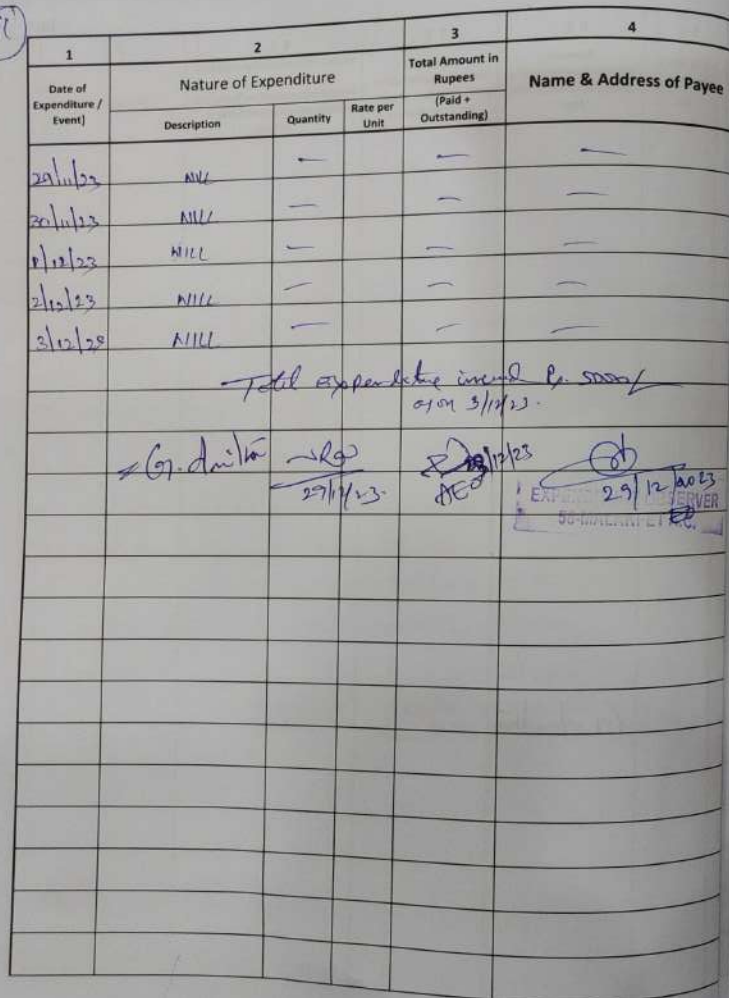 1 2 3 4
Date of Expenditure / Event] Nature of Expenditure Total Amount in Rupees (Paid + Outstanding) Name & Address of Payee
Description Quantity Rate per Unit
29/11/23 NILL — — —
30/11/23 NILL — — —
1/12/23 NILL — — —
2/12/23 NILL — — —
3/12/23 NILL — — —
Total expenditure incurred Rs. 5000/
as on 3/12/23.
29/12/23. AEO 29/12/2023
OBSERVER